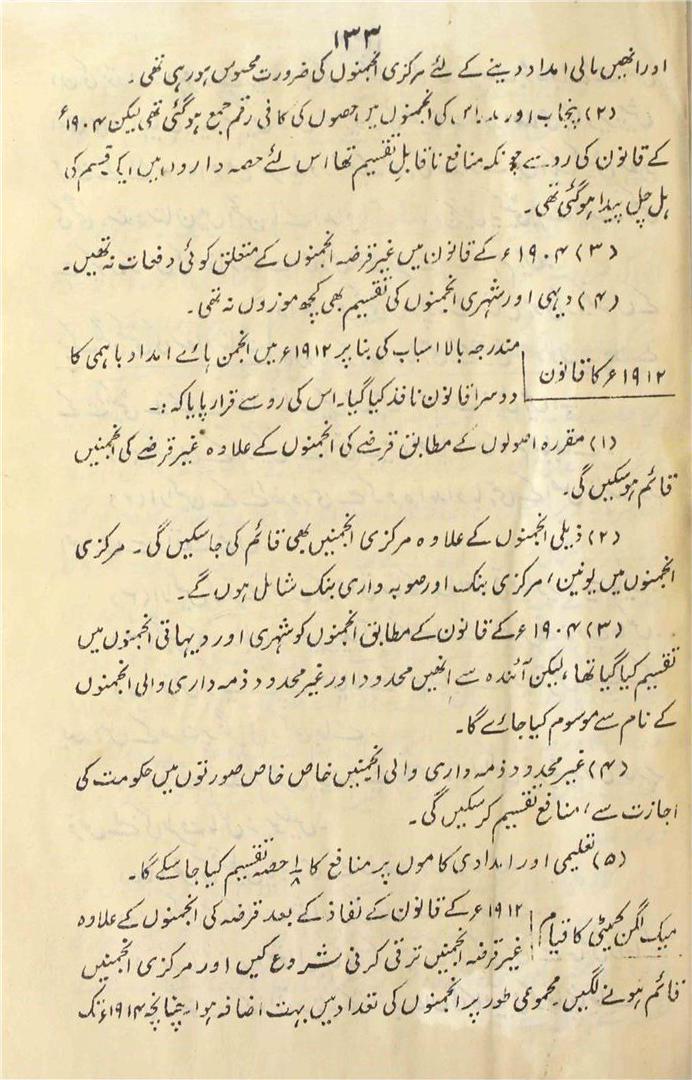 ۱۳۳
اور انھیں مالی امداد دینے کے لئے مرکزی انجمنوں کی ضرورت محسوس ہو رہی تھی۔
(۲) پنجاب اور مدراس کی انجمنوں میں حصوں کی کافی رقم جمع ہو گئی تھی لیکن ۱۹۰۴ء
کے قانون کی رو سے چونکہ منافع ناقابلِ تقسیم تھا اس لئے حصہ داروں میں ایک قسم کی
ہل چل پیدا ہو گئی تھی۔
(۳) ۱۹۰۴ء کے قانون میں غیر قرضہ انجمنوں کے متعلق کوئی دفعات نہ تھیں۔
(۴) دیہی اور شہری انجمنوں کی تقسیم بھی کچھ موزوں نہ تھی۔
۱۹۱۲ء کا قانون
مندرجہ بالا اسباب کی بنا پر ۱۹۱۲ء میں انجمن ہائے امداد باہمی کا
دوسرا قانون نافذ کیا گیا۔ اس کی رو سے قرار پایا کہ :۔
(۱) مقررہ اصولوں کے مطابق قرضے کی انجمنوں کے علاوہ غیر قرضے کی انجمنیں
قائم ہو سکیں گی۔
(۲) ذیلی انجمنوں کے علاوہ مرکزی انجمنیں بھی قائم کی جا سکیں گی۔ مرکزی
انجمنوں میں یونین، مرکزی بنک اور صوبہ واری بنک شامل ہوں گے۔
(۳) ۱۹۰۴ء کے قانون کے مطابق انجمنوں کو شہری اور دیہاتی انجمنوں میں
تقسیم کیا گیا تھا، لیکن آئندہ سے انھیں محدود اور غیر محدود ذمہ داری والی انجمنوں
کے نام سے موسوم کیا جائے گا۔
(۴) غیر محدود ذمہ داری والی انجمنیں خاص خاص صورتوں میں حکومت کی
اجازت سے، منافع تقسیم کر سکیں گی۔
(۵) تعلیمی اور امدادی کاموں پر منافع کا ۱/۸ حصہ تقسیم کیا جا سکے گا۔
میک لگن کمیٹی کا قیام
۱۹۱۲ء کے قانون کے نفاذ کے بعد قرضہ کی انجمنوں کے علاوہ
غیر قرضہ انجمنیں ترقی کرنی شروع کیں اور مرکزی انجمنیں
قائم ہونے لگیں۔ مجموعی طور پر انجمنوں کی تعداد میں بہت اضافہ ہوا۔ چنانچہ ۱۹۱۴ء تک